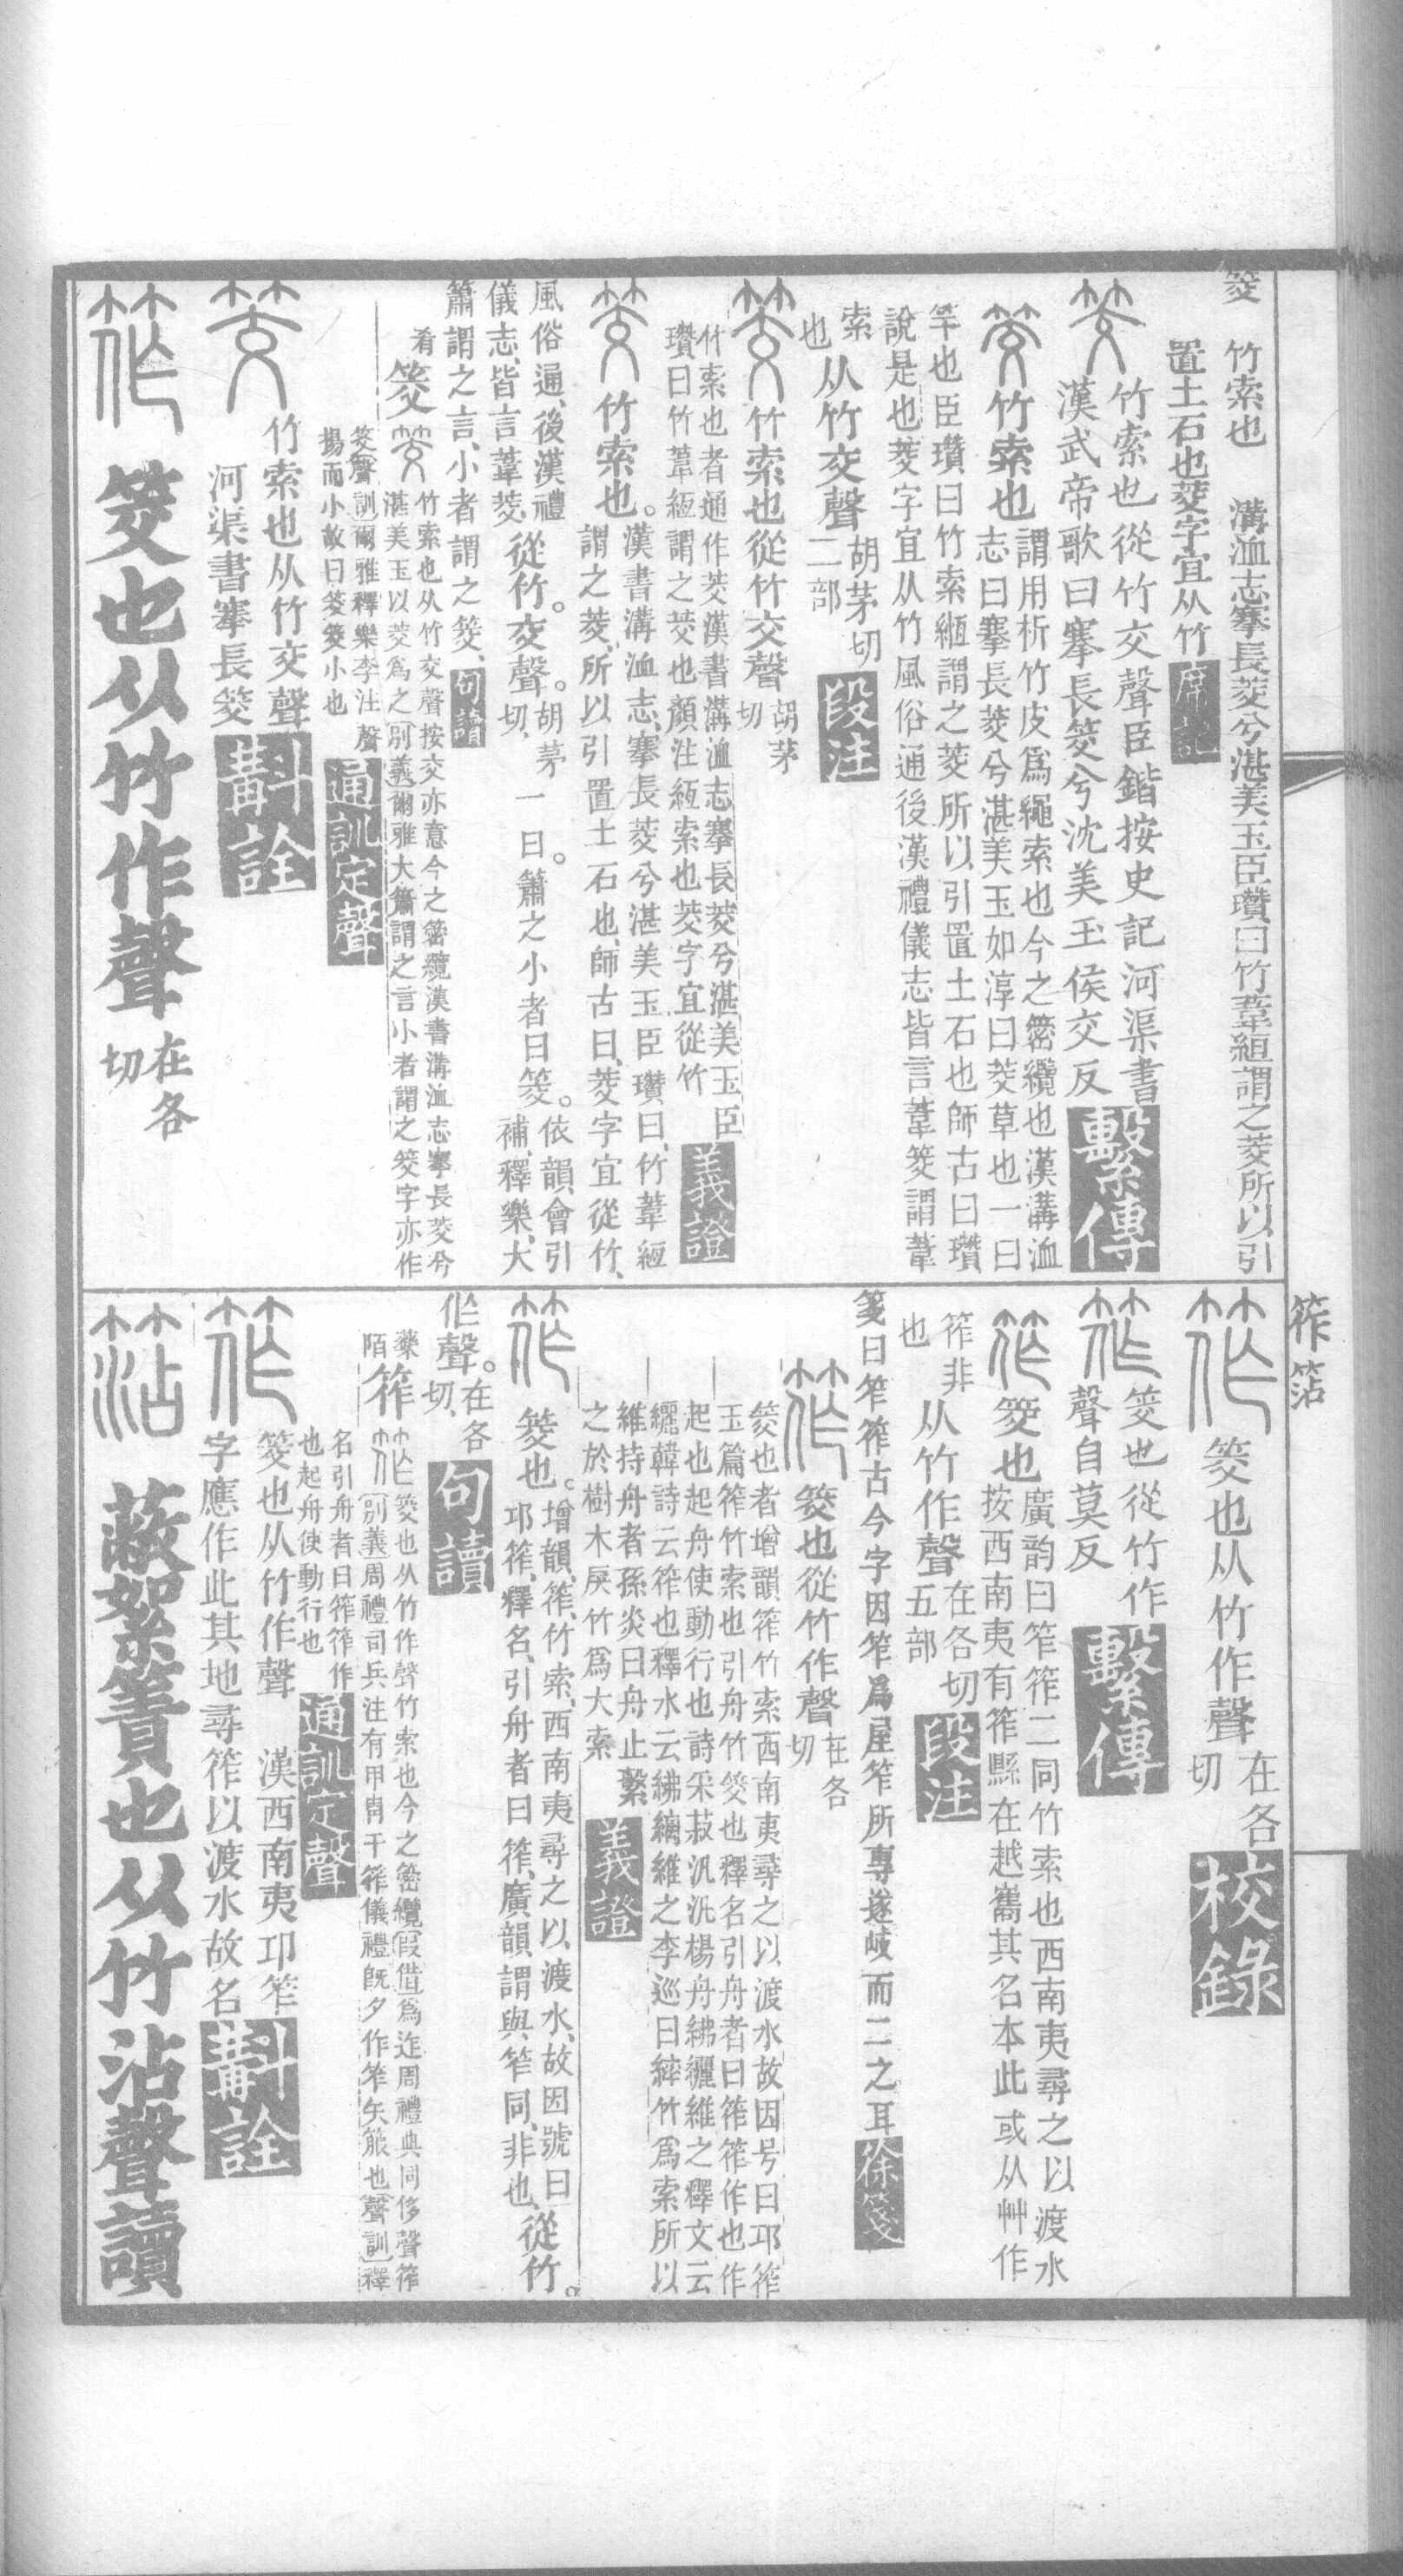 筊
竹索也 溝洫志搴長茭兮湛美玉臣瓚曰竹葦絙謂之茭所以引
置土石也茭字宜从竹 席記
竹索也從竹交聲臣鍇按史記河渠書
漢武帝歌曰搴長筊兮沈美玉侯交反 繫傳
竹索也謂用析竹皮爲繩索也今之䉲纜也漢溝洫
志曰搴長茭兮湛美玉如淳曰茭草也一曰
竿也臣瓚曰竹索緪謂之茭所以引置土石也師古曰瓚
說是也茭字宜从竹風俗通後漢禮儀志皆言葦筊謂葦
索也
从竹交聲胡茅切二部 段注
竹索也從竹交聲胡茅切
竹索也者通作茭漢書溝洫志搴長茭兮湛美玉臣
瓚曰竹葦絙謂之茭也顏注絙索也茭字宜從竹 義證
竹索也。漢書溝洫志、搴長茭兮湛美玉臣瓚曰、竹葦絙
謂之茭、所以引置土石也、師古曰、茭字宜從竹、
風俗通、後漢禮
儀志、皆言葦茭、從竹。交聲。胡茅切、一曰。簫之小者曰筊。依韻會引
補、釋樂、大
簫謂之言、小者謂之筊、 句讀
肴 筊 竹索也从竹交聲按交亦意今之䉲纜漢書溝洫志搴長茭兮
湛美玉以茭爲之〔別義〕爾雅大簫謂之言小者謂之筊字亦作
筊〔聲訓〕爾雅釋樂李注聲
揚而小故曰筊筊小也 通訓定聲
竹索也从竹交聲
河渠書搴長筊 斠詮
筊也从竹作聲在各切
筰 箔
筊也从竹作聲在各切 校錄
筊也從竹作
聲自莫反 繫傳
筊也廣韵曰笮筰二同竹索也西南夷尋之以渡水
按西南夷有筰縣在越巂其名本此或从艸作
筰非也
从竹作聲在各切五部 段注
箋曰笮筰古今字因笮爲屋笮所專遂歧而二之耳 徐箋
筊也從竹作聲在各切
筊也者增韻筰竹索西南夷尋之以渡水故因号曰邛筰
玉篇筰竹索也引舟竹筊也釋名引舟者曰筰筰作也作
起也起舟使動行也詩采菽汎汎楊舟紼纚維之釋文云
纚韓詩云筰也釋水云紼縭維之李巡曰䋄竹爲索所以
維持舟者孫炎曰舟止繫
之於樹木戾竹爲大索 義證
筊也。增韻、筰、竹索、西南夷尋之以渡水、故因號曰
邛筰、釋名、引舟者曰筰、廣韻、謂與笮同、非也、從竹。
作聲。在各切、 句讀
藥陌 筰 筊也从竹作聲竹索也今之䉲纜〔假借〕爲迮周禮典同侈聲筰
〔別義〕周禮司兵注有甲胄干筰儀禮既夕作笮矢箙也〔聲訓〕釋
名引舟者曰筰筰作
也起舟使動行也 通訓定聲
筊也从竹作聲 漢西南夷邛笮
字應作此其地尋筰以渡水故名 斠詮
蔽絮簀也从竹沾聲讀